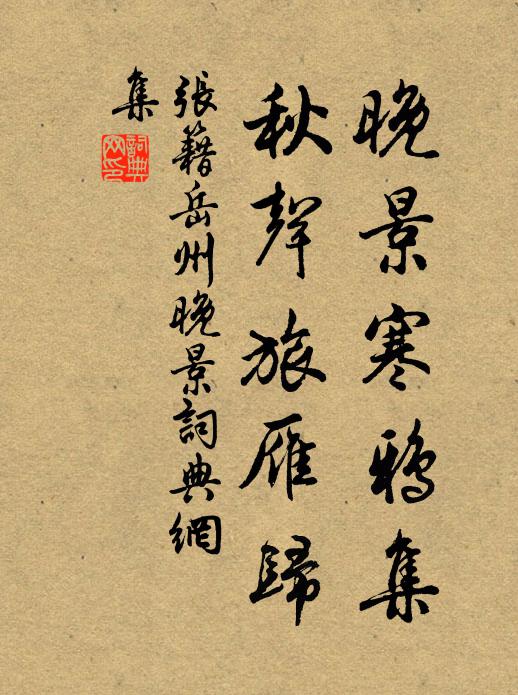 晚景寒鴉集
秋聲旅雁歸
張籍岳州晚景詞典網
集
詞典
网印